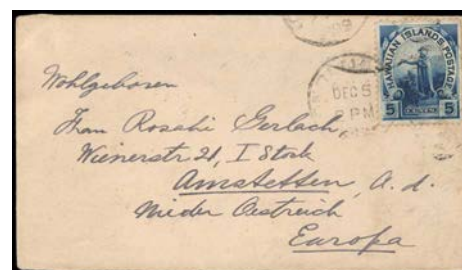 99
HAWAIIAN ISLANDS POSTAGE
5 CENTS 5
DEC 5
2 PM
Wohlgeboren
Frau Rosahi Gerlach,
Wienerstr 21, I Stock
Amstetten, a. d.
Nieder Oestreich
Europa